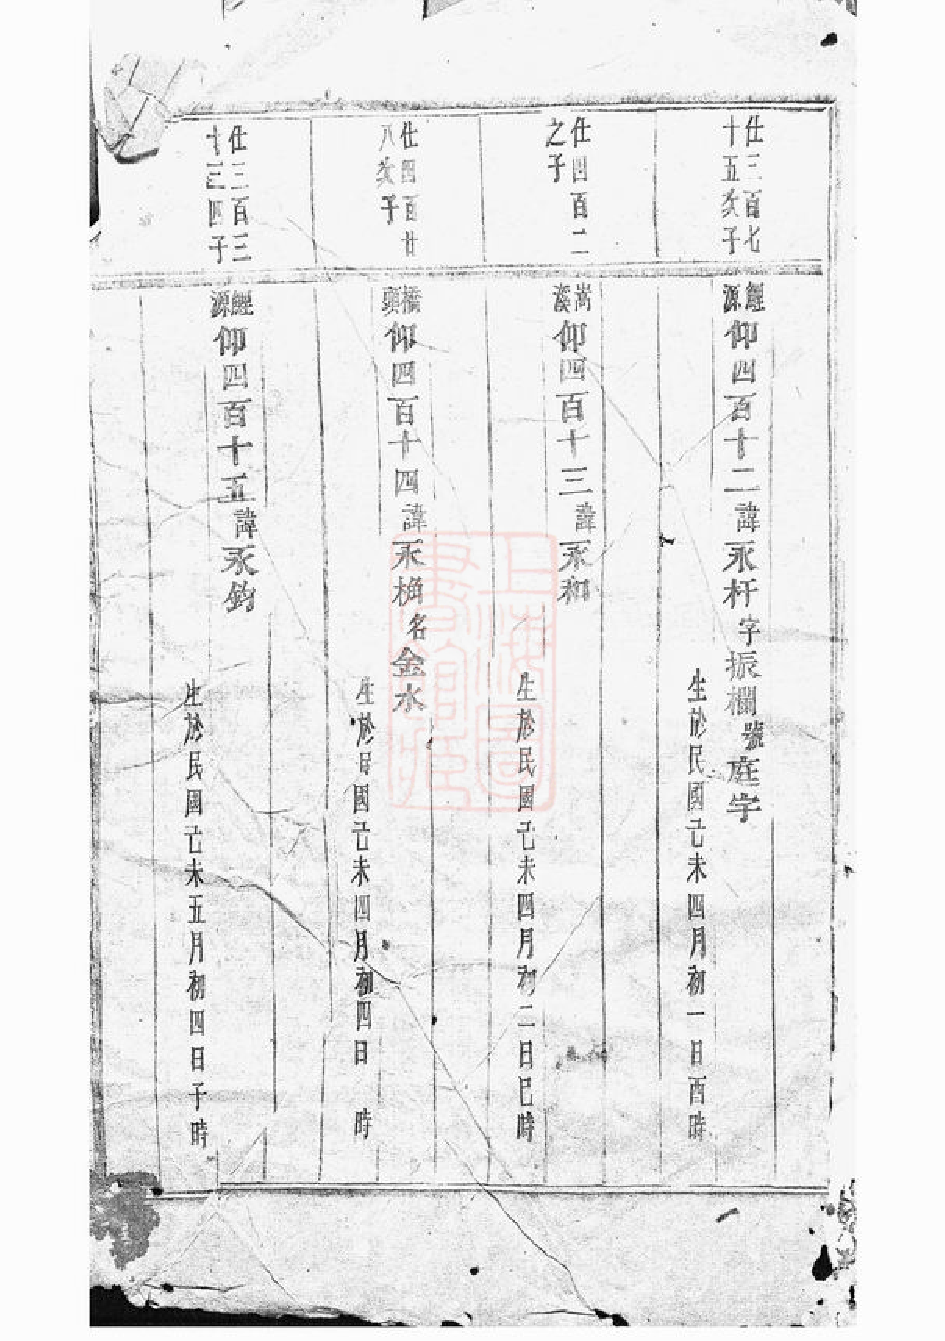 仕三百七
十五次子
經源仰四百十二諱永杆字振欄號庭宇
生於民國己未四月初一日酉時
仕四百二
之子
嵩溪仰四百十三諱永和
生於民國己未四月初二日巳時
仕四百廿
八次子
橋頭仰四百十四諱永桷名金水
生於民國己未四月初四日 時
仕三百三
十三四子
經源仰四百十五諱永鈞
生於民國己未五月初四日子時
上海圖
書館藏